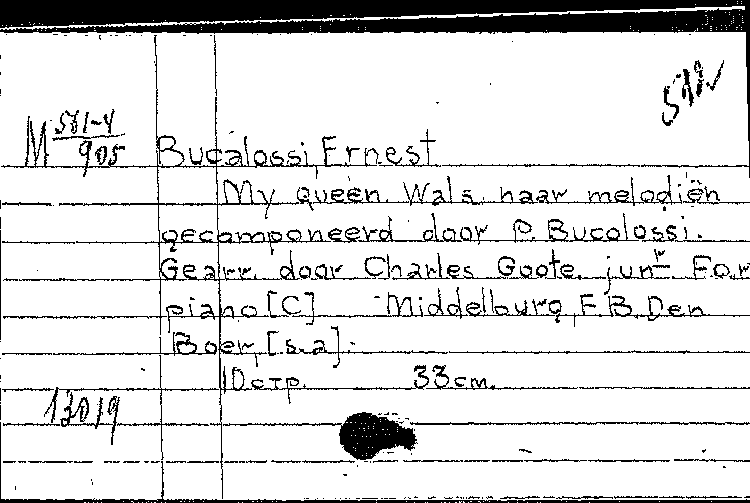 M 561-4/905
Bucalossi, Ernest
My queen. Wals naar melodiën
gecomponeerd door P. Bucolossi.
Gearr. door Charles Goote junr. For
piano [C] - Middelburg, F.B. Den
Boer, [s.a].
10 стр. 33 cm.
13019